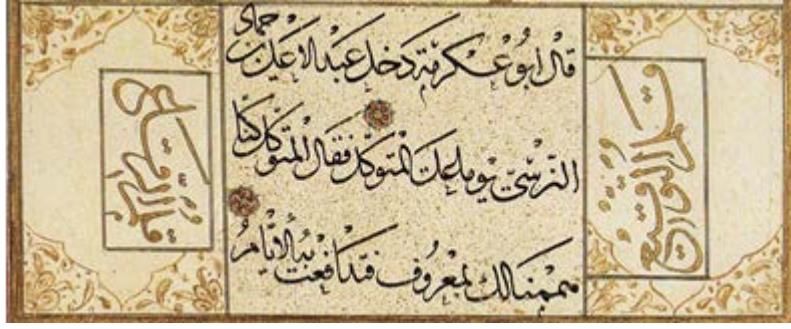 قال ابو عكرمة دخل عبد الاعلى بن حماد
النرسي يوما على المتوكل فقال المتوكل كنا
هممنا لك بمعروف فتدافعت به الايام